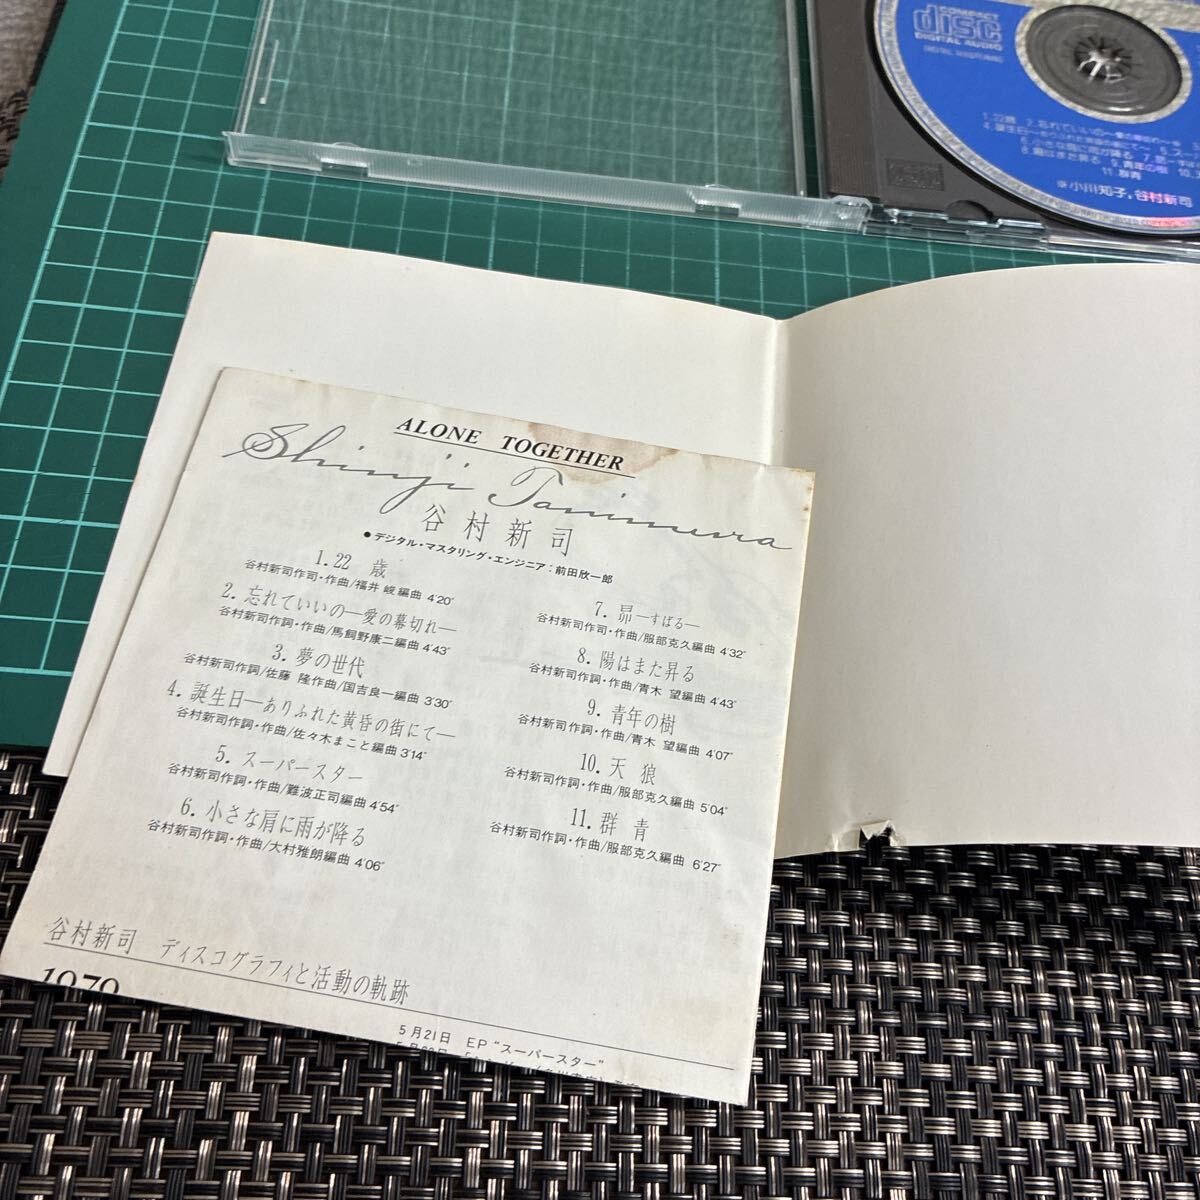 COMPACT
disc
DIGITAL AUDIO
DIGITAL MASTERING
1.22歳 2.忘れていいの
8.陽はまた昇る 9.青年の樹 10.
11.群青
※小川知子,谷村新司
ALONE TOGETHER
Shinji Tanimura
谷村新司
●デジタル・マスタリング・エンジニア:前田欣一郎
1. 22 歳
谷村新司作司・作曲/福井 峻編曲 4'20"
2. 忘れていいの―愛の幕切れ―
谷村新司作詞・作曲/馬飼野康二編曲 4'43"
3. 夢の世代
谷村新司作詞/佐藤 隆作曲/国吉良一編曲 3'30"
4. 誕生日―ありふれた黄昏の街にて―
谷村新司作詞・作曲/佐々木まこと編曲 3'14"
5. スーパースター
谷村新司作詞・作曲/難波正司編曲 4'54"
6. 小さな肩に雨が降る
谷村新司作詞・作曲/大村雅朗編曲 4'06"
7. 昴―すばる―
谷村新司作司・作曲/服部克久編曲 4'32"
8. 陽はまた昇る
谷村新司作詞・作曲/青木 望編曲 4'43"
9. 青年の樹
谷村新司作詞・作曲/青木 望編曲 4'07"
10. 天 狼
谷村新司作詞・作曲/服部克久編曲 5'04"
11. 群 青
谷村新司作詞・作曲/服部克久編曲 6'27"
谷村新司 ディスコグラフィと活動の軌跡
1979
5月21日 EP "スーパースター"